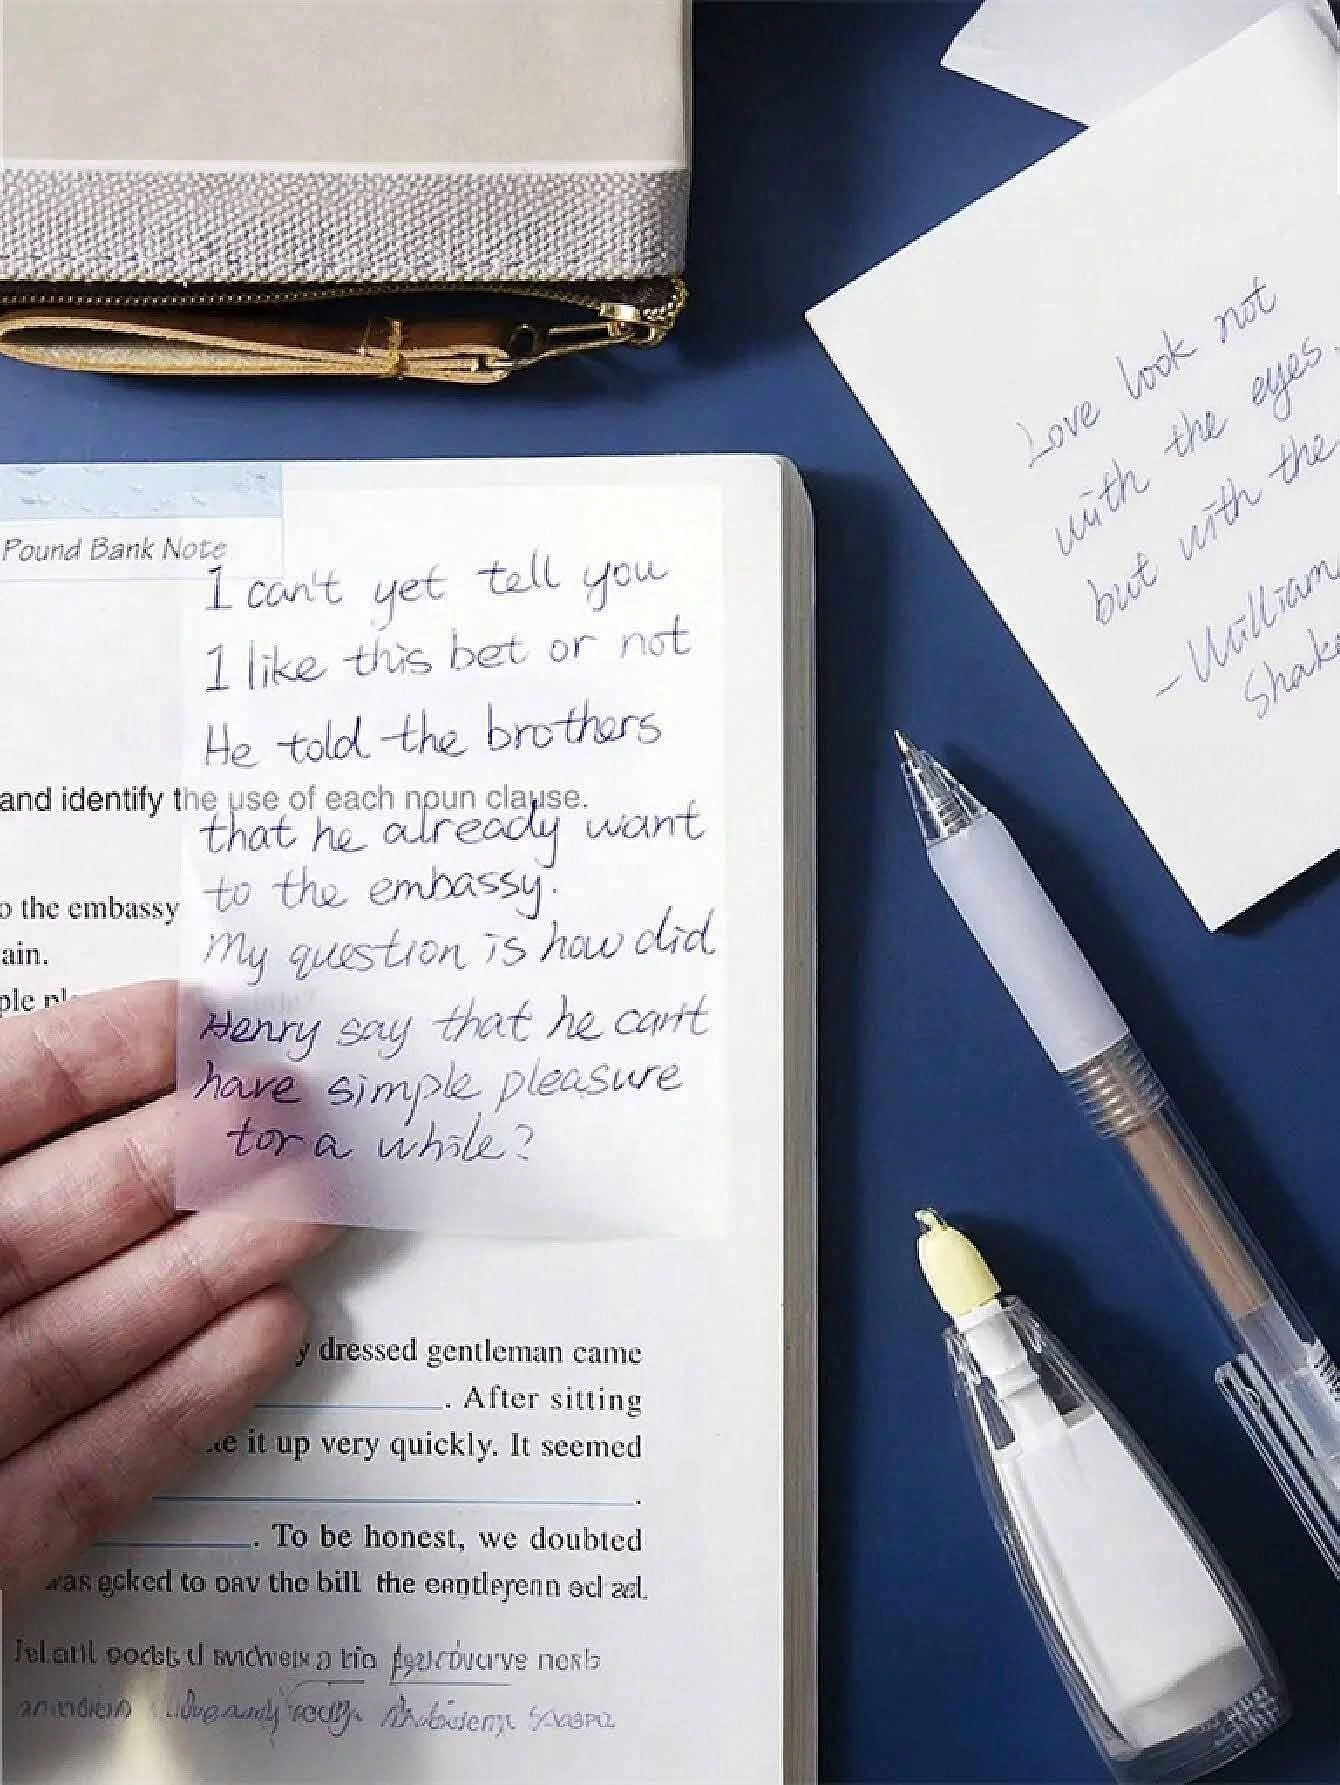 Pound Bank Note
I can't yet tell you
I like this bet or not
He told the brothers
and identify the use of each noun clause.
that he already want
to the embassy.
o the embassy
My question is how did
ain.
Henry say that he can't
ple
have simple pleasure
for a while?
y dressed gentleman came
. After sitting
it up very quickly. It seemed
.
. To be honest, we doubted
to the bill the
Love look not
with the eyes,
but with the
- William
Shake